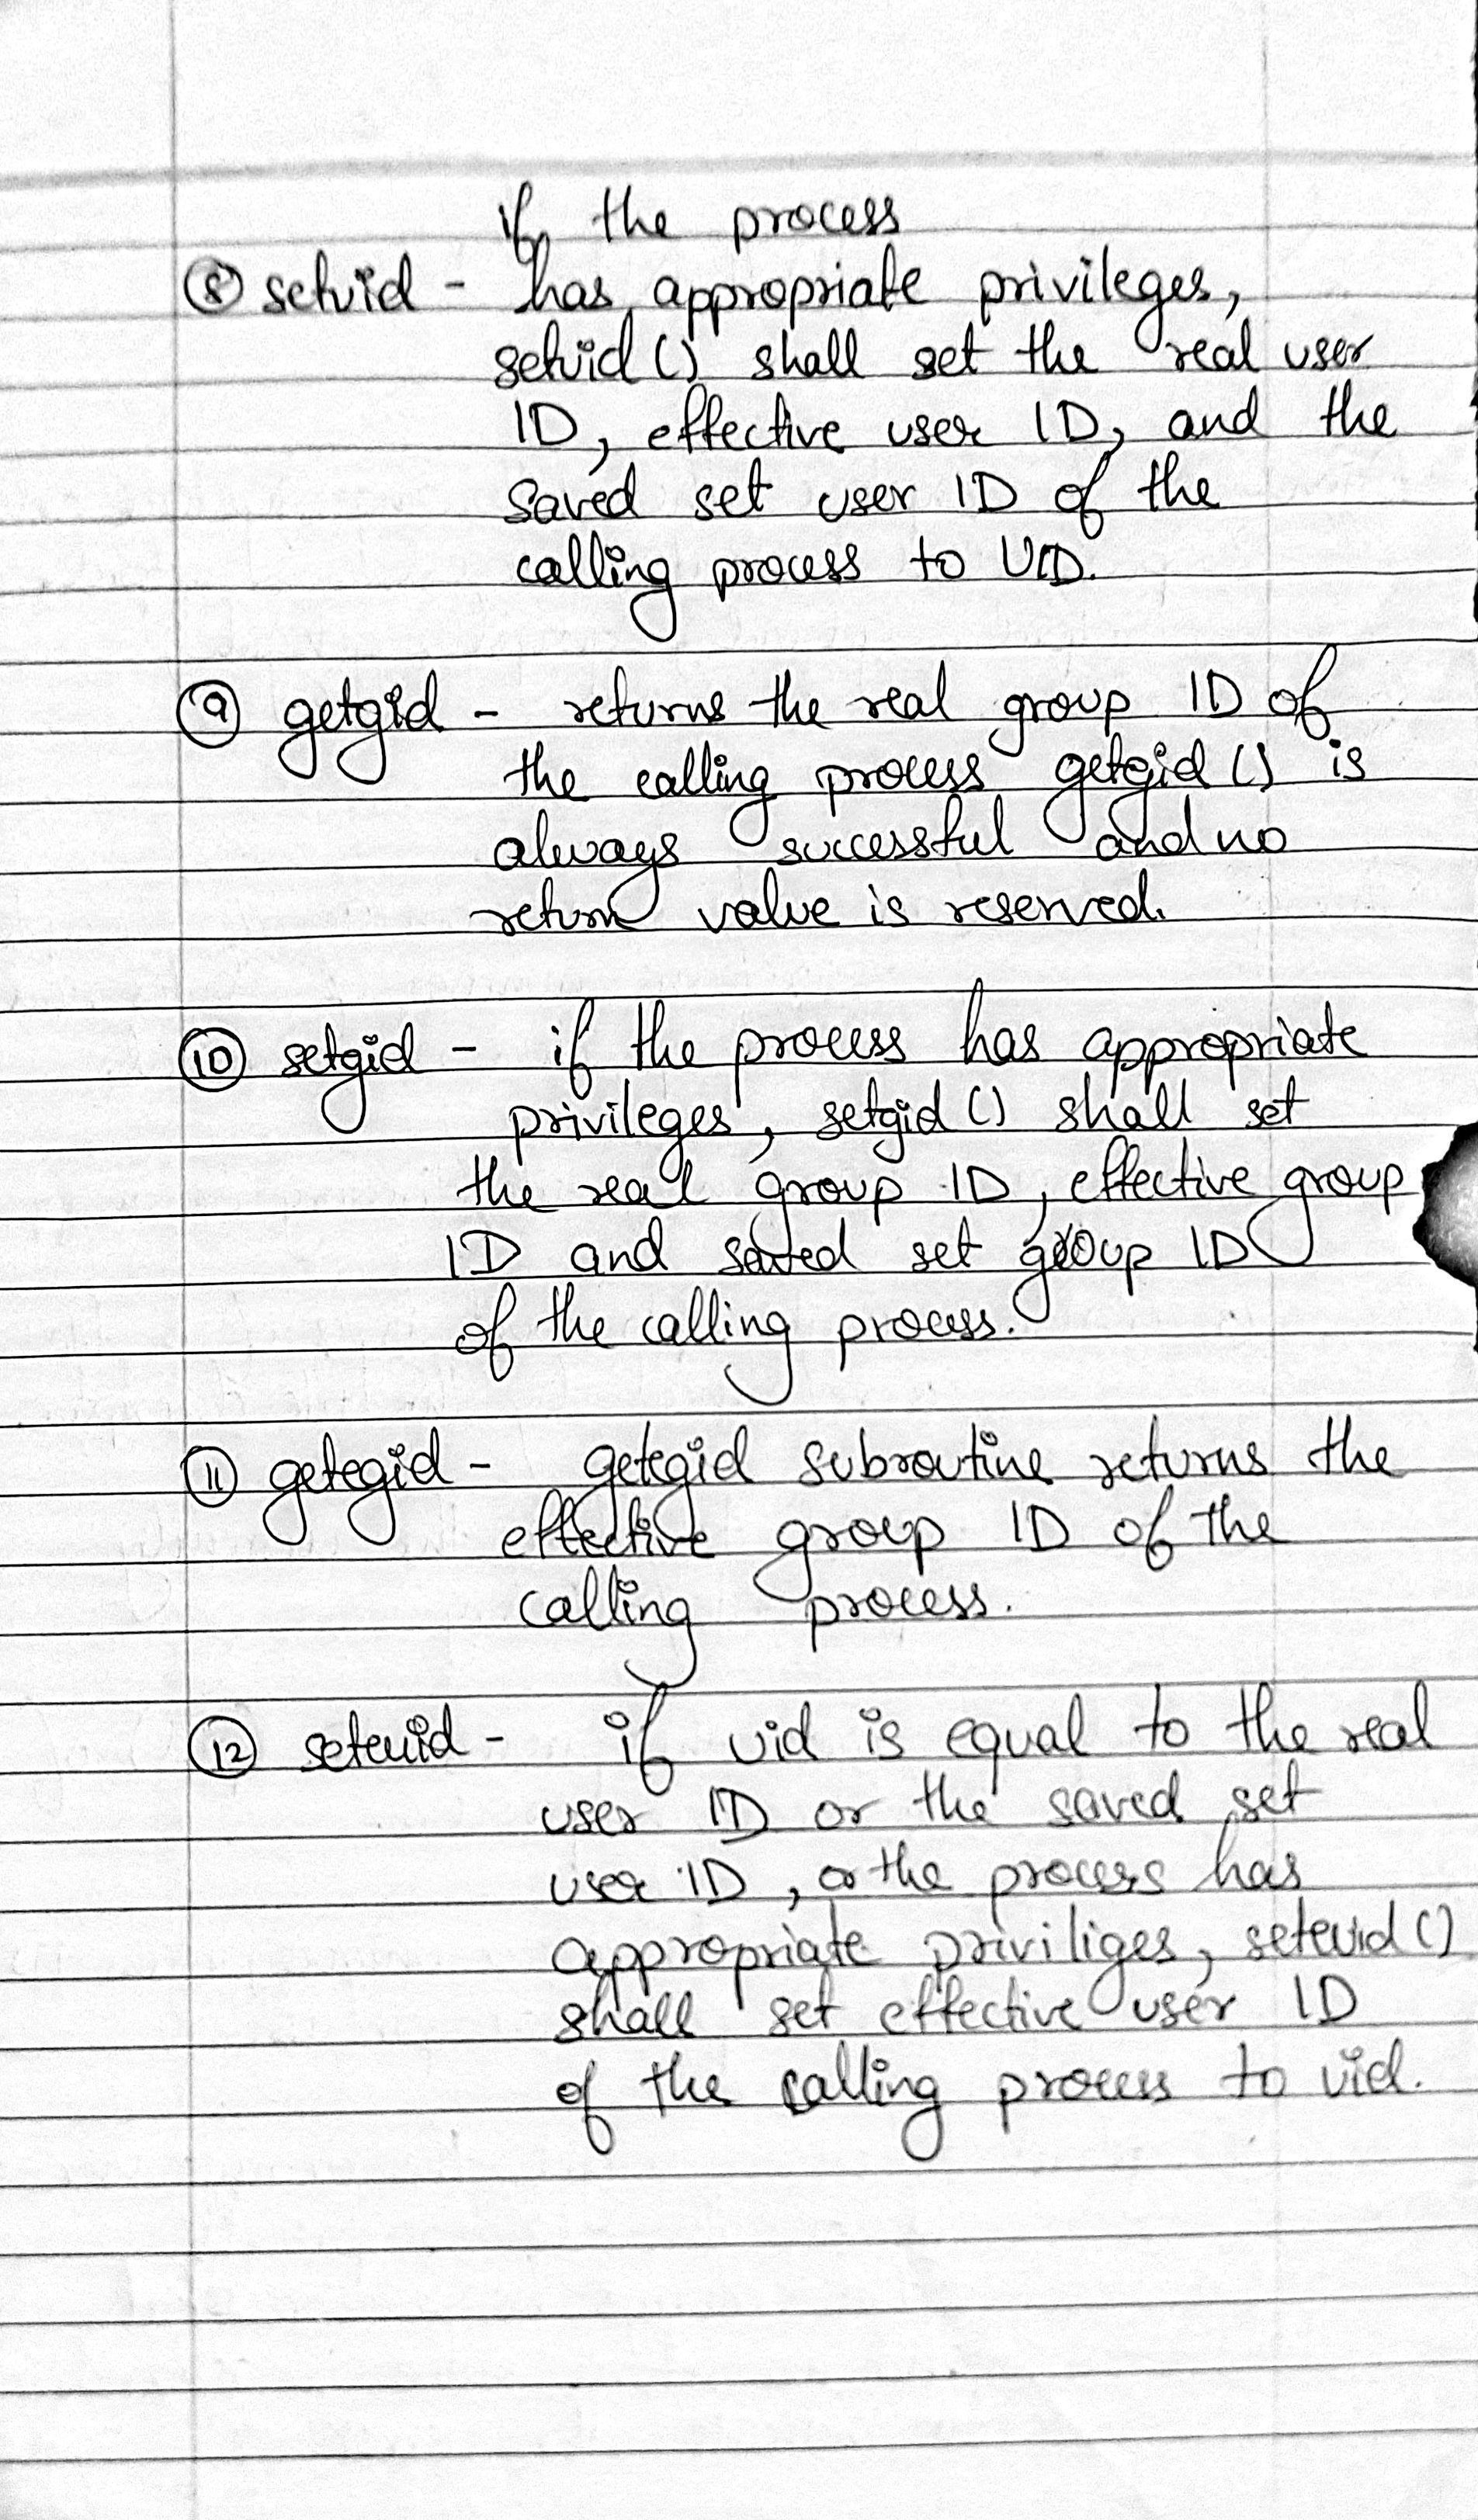 if the process
⑧ setuid - has appropriate privileges,
setuid () shall set the real user
ID, effective user ID, and the
saved set user ID of the
calling process to UID.
⑨ getgid - returns the real group ID of
the calling process getgid () is
always successful and no
return value is reserved.
⑩ setgid - if the process has appropriate
privileges, setgid () shall set
the real group ID, effective group
ID and saved set group ID
of the calling process.
⑪ getegid - getegid subroutine returns the
effective group ID of the
calling process.
⑫ seteuid - if uid is equal to the real
user ID or the saved set
user ID, or the process has
appropriate priviliges, seteuid ()
shall set effective user ID
of the calling process to uid.